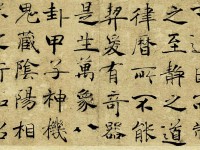 之至靜之道
律曆所不能
契爰有奇器
是生萬象八
卦甲子神機
鬼藏陰陽相